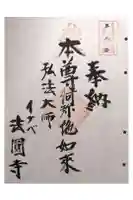 奉納
本尊阿弥陀如來
弘法大師
イナベ
法圓寺